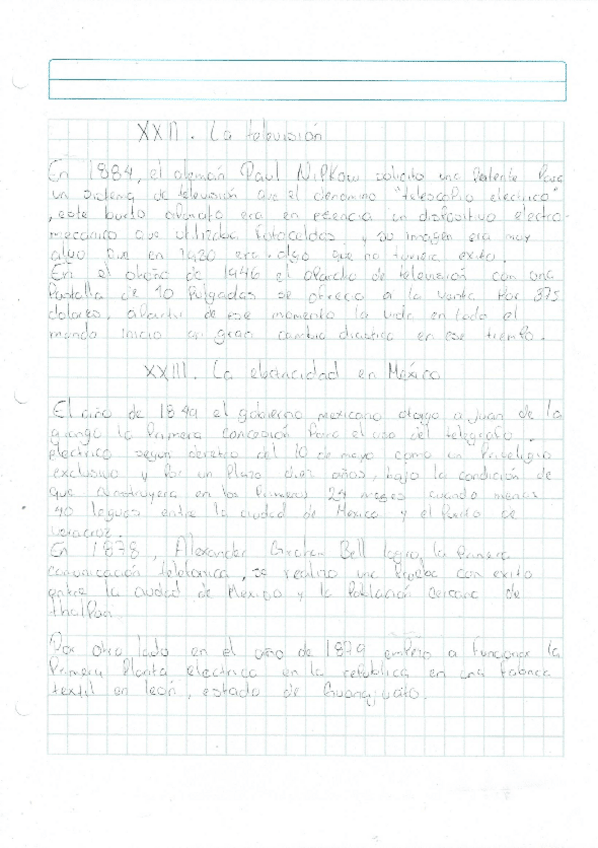 XXII. La televisión
En 1884, el alemán Paul Nipkow solicito una Patente Para
un sistema de televisión que el denomino "telescopio electrico"
, este burdo aparato era en esencia un dispositivo electro-
mecanico que utilizaba fotoceldas y su imagen era muy
que en 1920 era algo que no tuviera exito.
En el otoño de 1946 el aparato de television con una
Pantalla de 10 Pulgadas se ofrecia a la venta Por 375
dolares, apartir de ese momento la vida en todo el
mundo inicio un gran cambio drastico en ese tiempo.
XXIII. La electricidad en México
El año de 1849 el gobierno mexicano otorgo a Juan de la
granga la Primera concesión Para el uso del telegrafo
electrico segun decreto del 10 de mayo como un Priveligio
exclusivo y Por un Plazo diez años, bajo la condición de
que construyera en los Primeros 24 meses cuando menos
40 leguas entre la ciudad de Mexico y el Puerto de
veracruz.
En 1878, Alexander Graham Bell logro, la Primera
comunicación telefonica, se realizo una Prueba con exito
entre la ciudad de Mexico y la Población cercana de
thalPan.
Por otro lado en el año de 1879 emPezo a funcionar la
Primera Planta electrica en la republica en una fabrica
textil en león, estado de Guanajuato.